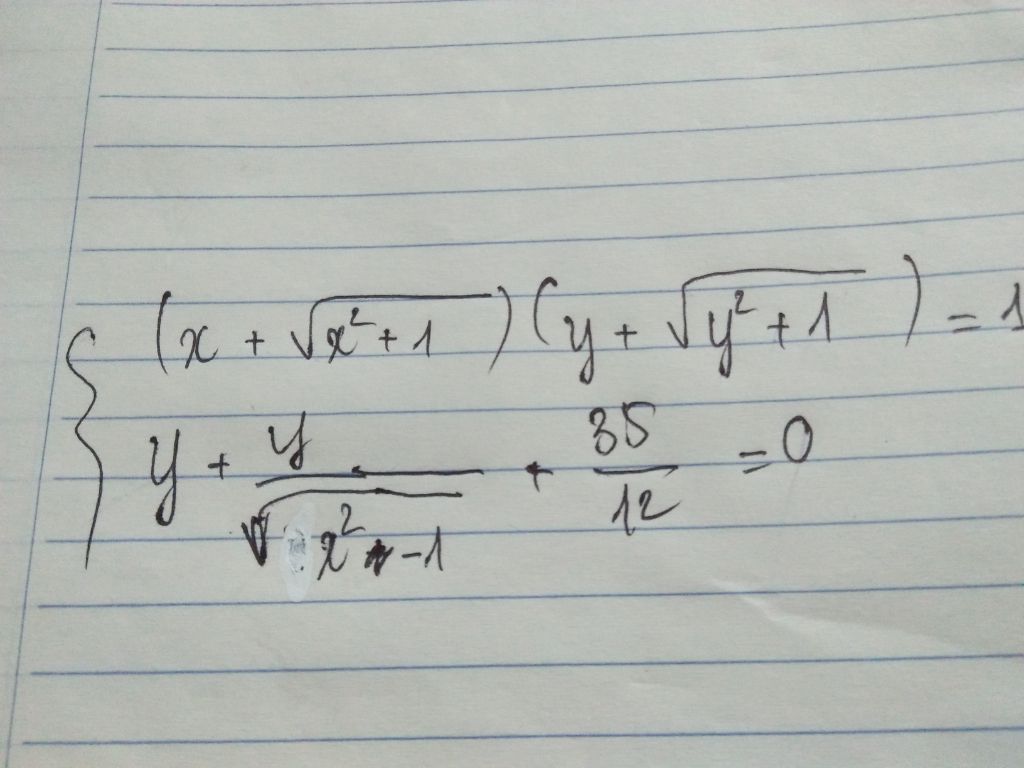 (x + √(x² + 1)) (y + √(y² + 1)) = 1
y + y/√(x² - 1) + 35/12 = 0